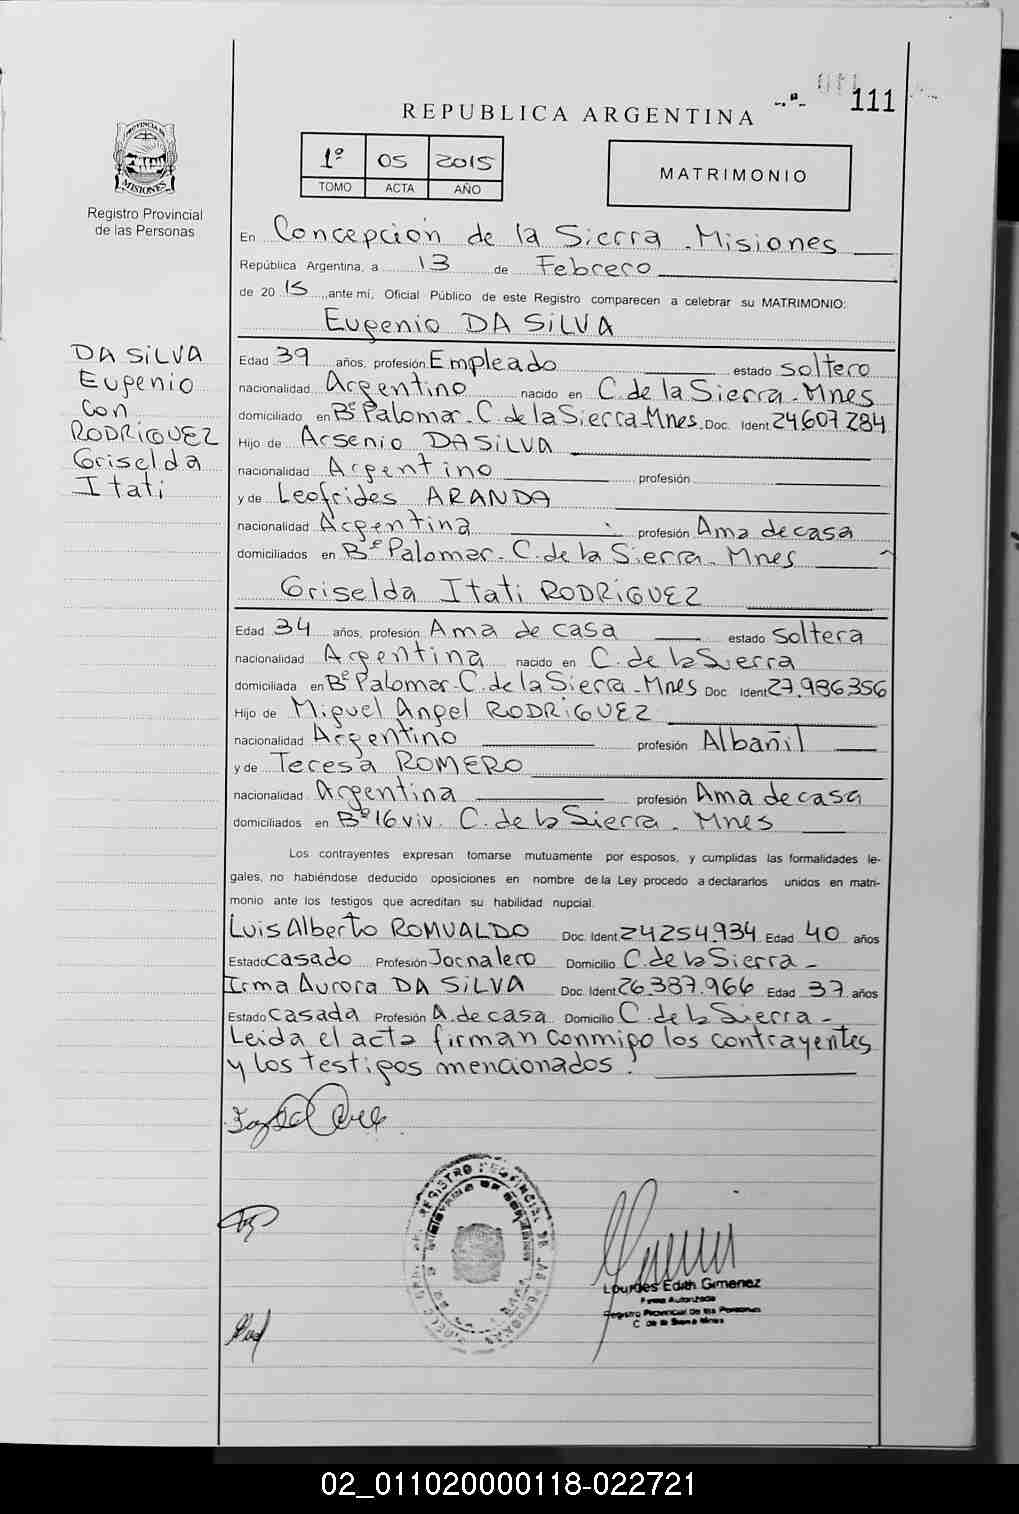 111
REPUBLICA ARGENTINA
PROVINCIA DE
MISIONES
Registro Provincial
de las Personas
1º 05 2015
TOMO ACTA AÑO
MATRIMONIO
En Concepción de la Sierra - Misiones
República Argentina, a 13 de Febrero
de 20 15 ,ante mí, Oficial Público de este Registro comparecen a celebrar su MATRIMONIO:
Eugenio DA SILVA
DA SILVA
Eugenio
con
RODRIGUEZ
Griselda
Itati
Edad 39 años, profesión Empleado estado soltero
nacionalidad Argentino nacido en C. de la Sierra - Mnes
domiciliado en Bº Palomar - C. de la Sierra - Mnes. Doc. Ident 24607284
Hijo de Arsenio DA SILVA
nacionalidad Argentino profesión
y de Leofrides ARANDA
nacionalidad Argentina profesión Ama de casa
domiciliados en Bº Palomar - C. de la Sierra - Mnes
Griselda Itati RODRIGUEZ
Edad 34 años, profesión Ama de casa estado soltera
nacionalidad Argentina nacido en C. de la Sierra
domiciliada en Bº Palomar - C. de la Sierra - Mnes Doc. Ident 27.986356
Hijo de Miguel Angel RODRIGUEZ
nacionalidad Argentino profesión Albañil
y de Teresa ROMERO
nacionalidad Argentina profesión Ama de casa
domiciliados en Bº 16 viv. C. de la Sierra - Mnes
Los contrayentes expresan tomarse mutuamente por esposos, y cumplidas las formalidades le-
gales, no habiéndose deducido oposiciones en nombre de la Ley procedo a declararlos unidos en matri-
monio ante los testigos que acreditan su habilidad nupcial.
Luis Alberto ROMUALDO Doc. Ident 24254.934 Edad 40 años
Estado casado Profesión Jornalero Domicilio C. de la Sierra -
Irma Aurora DA SILVA Doc. Ident 26.387.966 Edad 37 años
Estado casada Profesión A. de casa Domicilio C. de la Sierra -
Leida el acta firman conmigo los contrayentes
y los testigos mencionados.
REGISTRO PROVINCIAL DE LAS PERSONAS
Lourdes Edith Gimenez
Firma Autorizada
Registro Provincial de las Personas
C. de la Sierra Mnes
02_011020000118-022721